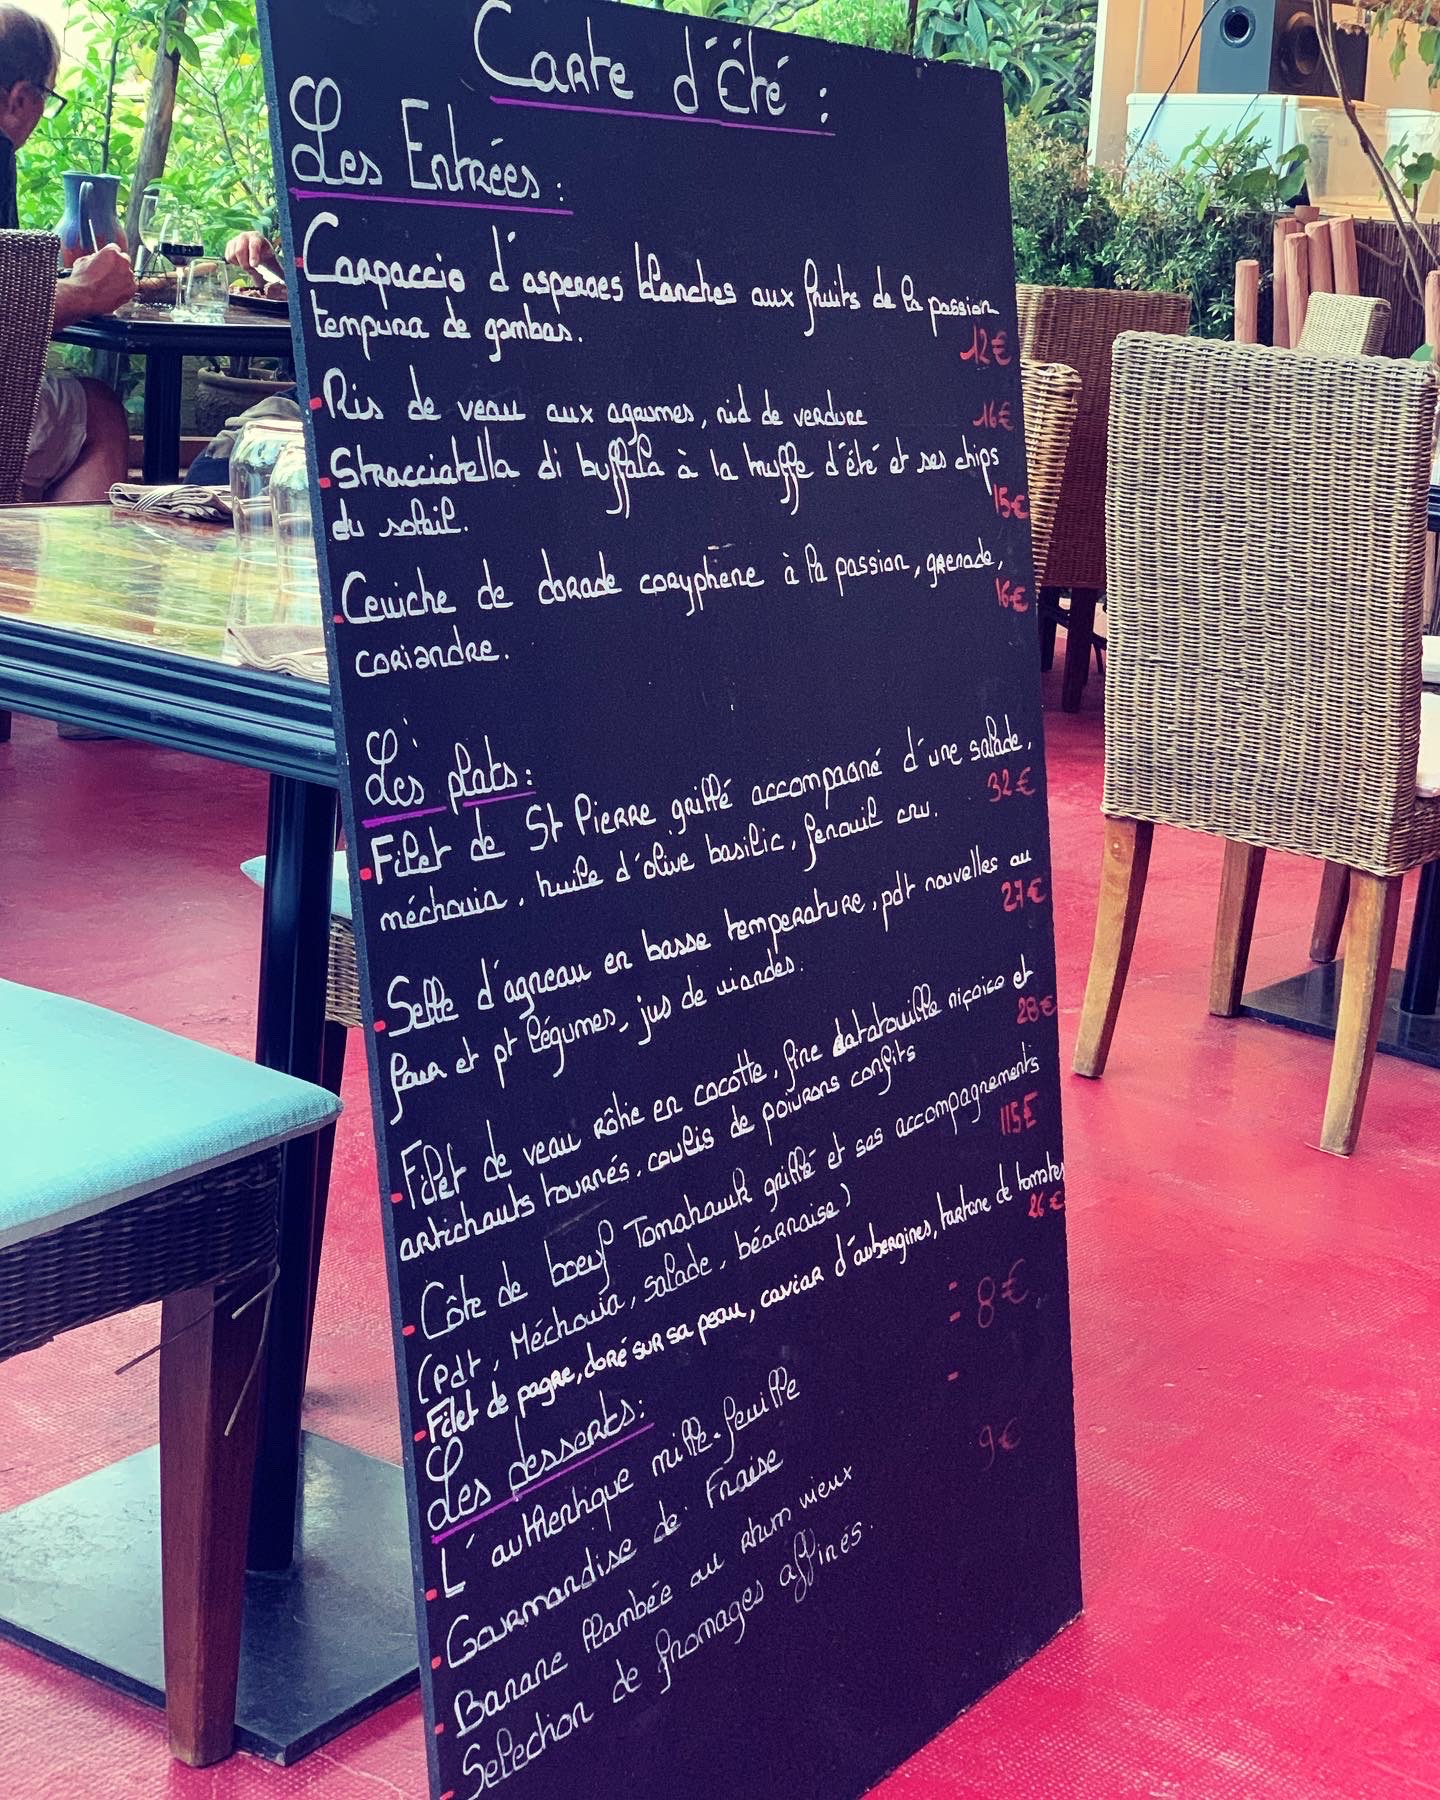 Carte d'été :
Les Entrées :
Carpaccio d'asperges blanches aux fruits de la passion
tempura de gambas.
12€
Ris de veau aux agrumes, nid de verdure 16€
Stracciatella di buffala à la truffe d'été et ses chips
du soleil.
15€
Ceviche de dorade coryphène à la passion, grenade,
coriandre.
16€
Les plats :
Filet de St Pierre grillé accompagné d'une salade,
méchouia, huile d'olive basilic, fenouil cru.
32€
Selle d'agneau en basse température, pdt nouvelles au
four et pt légumes, jus de viandes.
27€
Filet de veau rôtie en cocotte, fine ratatouille niçoise et
artichauts tournés, coulis de poivrons confits
28€
Côte de boeuf Tomahawk grillé et ses accompagnements
(Pdt, Méchouia, salade, béarnaise)
115€
Filet de pagre, doré sur sa peau, caviar d'aubergines, tartane de tomates
26€
Les desserts :
L'authentique mille-feuille
8€
Gourmandise de Fraise
Banane flambée au rhum vieux
9€
Selection de fromages affinés.